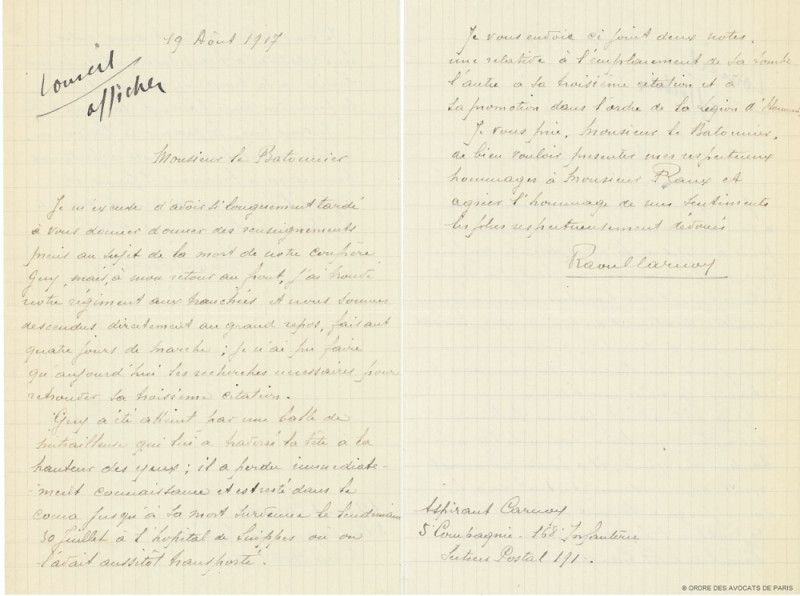 19 Août 1917
Conseil
afficher
Monsieur le Batonnier
Je m'excuse d'avoir si longuement tardé
à vous donner donner des renseignements
précis au sujet de la mort de notre confrère
Guy, mais, à mon retour au front, j'ai trouvé
notre régiment aux tranchées et nous sommes
descendus directement au grand repos, faisant
quatre jours de marche ; je n'ai pu faire
qu'aujourd'hui les recherches nécessaires pour
retrouver sa troisième citation.
Guy a été atteint par une balle de
mitrailleuse qui lui a traversé la tête a la
hauteur des yeux ; il a perdu immédiate-
ment connaissance et est resté dans le
coma jusqu'à sa mort survenue le lendemain
30 juillet à l'hôpital de Suippes ou on
l'avait aussitôt transporté.
Je vous envoie ci joint deux notes,
une relative à l'emplacement de sa tombe
l'autre a sa troisième citation et à
sa promotion dans l'ordre de la Légion d'Honneur
Je vous prie, Monsieur le Batonnier,
de bien vouloir présenter mes respectueux
hommages à Monsieur et
agréer l'hommage de mes sentiments
les plus respectueusement dévoués
Raoul Carnoy
Aspirant Carnoy
5 Compagnie. 168 Infanterie
Secteur Postal 191.
© ORDRE DES AVOCATS DE PARIS